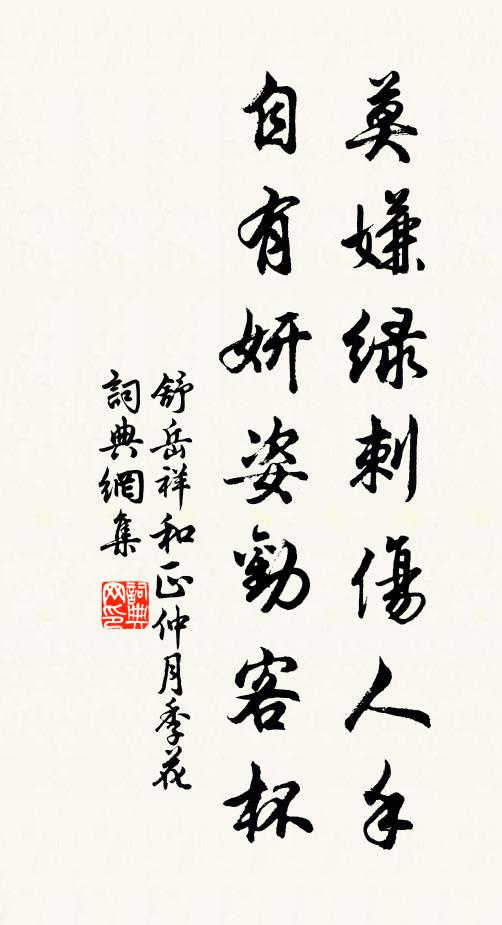 莫嫌绿刺傷人手
自有妍姿勸客杯
舒岳祥和正仲月季花
詞典網集
詞典
网印